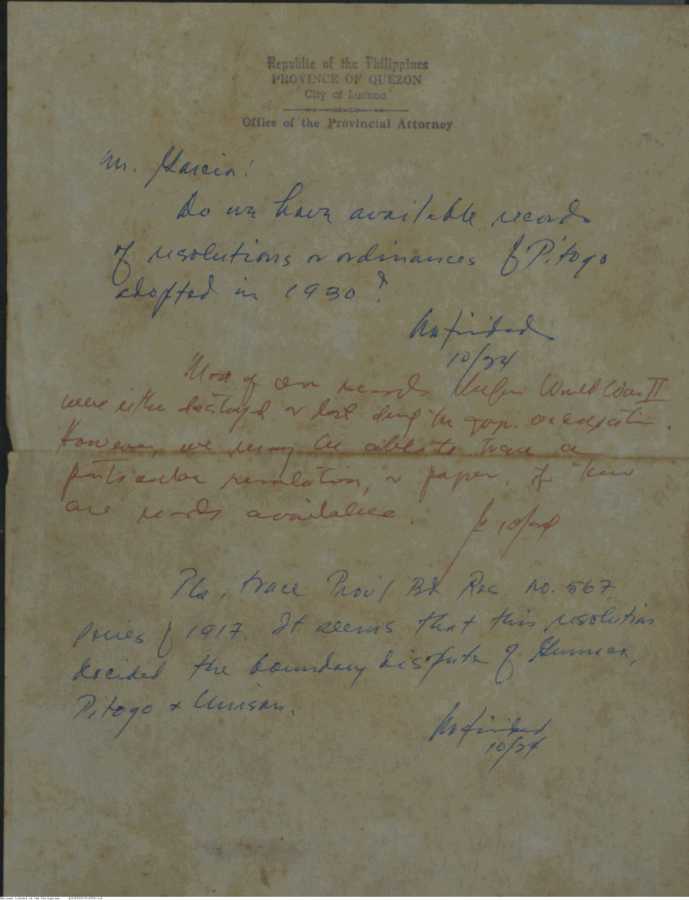 Republic of the Philippines
PROVINCE OF QUEZON
City of Lucena
Office of the Provincial Attorney
Mr. Garcia!
Do we have available records
of resolutions or ordinances of Pitogo
adopted in 1930?
10/24
Most of our records before World War II
were either destroyed or lost during the Jap. occupation.
However, we may be able to trace a
particular resolution, or paper, if there
are records available.
10/24
Pls. trace Prov'l Bd Res no. 567,
series of 1917. It seems that this resolution
decided the boundary dispute of Gumaca,
Pitogo & Unisan.
10/24